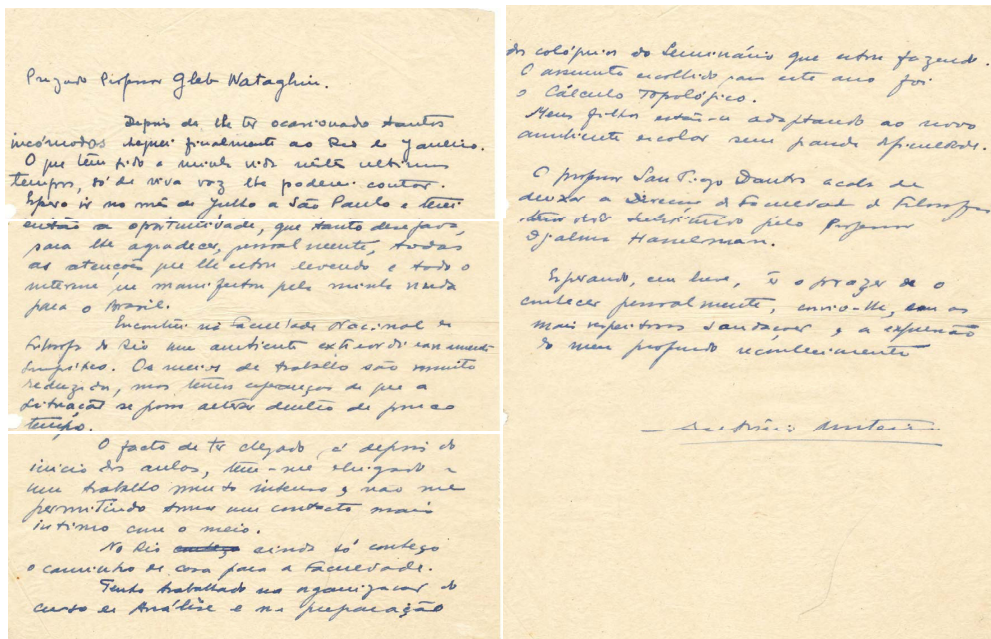 Prezado Professor Gleb Wataghin.
Depois de lhe ter ocasionado tantos
incómodos cheguei finalmente ao Rio de Janeiro.
O que tem sido a minha vida neste ultimos
tempos, só de viva voz lhe poderei contar.
Espero ir no mês de Julho a São Paulo e terei
então a oportunidade, que tanto desejava,
para lhe agradecer, pessoalmente, todas
as atenções que lhe estou devendo e todo o
interesse que manifestou pela minha vinda
para o Brasil.
Encontrei na Faculdade Nacional de
Filosofia do Rio um ambiente extraordinariamente
simpático. Os meios de trabalho são muito
reduzidos, mas temos esperanças de que a
situação se possa alterar dentro de pouco
tempo.
O facto de ter chegado já depois do
inicio das aulas, tem-me obrigado a
um trabalho muito intenso e não me
permitindo tomar um contacto mais
intimo com o meio.
No Rio ainda só conheço
o caminho de casa para a Faculdade.
Tenho trabalhado na organização do
curso de Análise e na preparação
dos colóquios do Seminário que estou fazendo.
O assunto escolhido para este ano foi
o Cálculo Topológico.
Meus filhos estão-se adaptando ao novo
ambiente escolar sem grande dificuldade.
O professor San Tiago Dantas acaba de
deixar a Direcção da Faculdade de Filosofia
tendo sido substituido pelo Professor
Djalma Hasselman.
Esperando, em breve, ter o prazer de o
conhecer pessoalmente, envio-lhe, com as
mais respeitosas saudações, a expressão
do meu profundo reconhecimento
António Monteiro